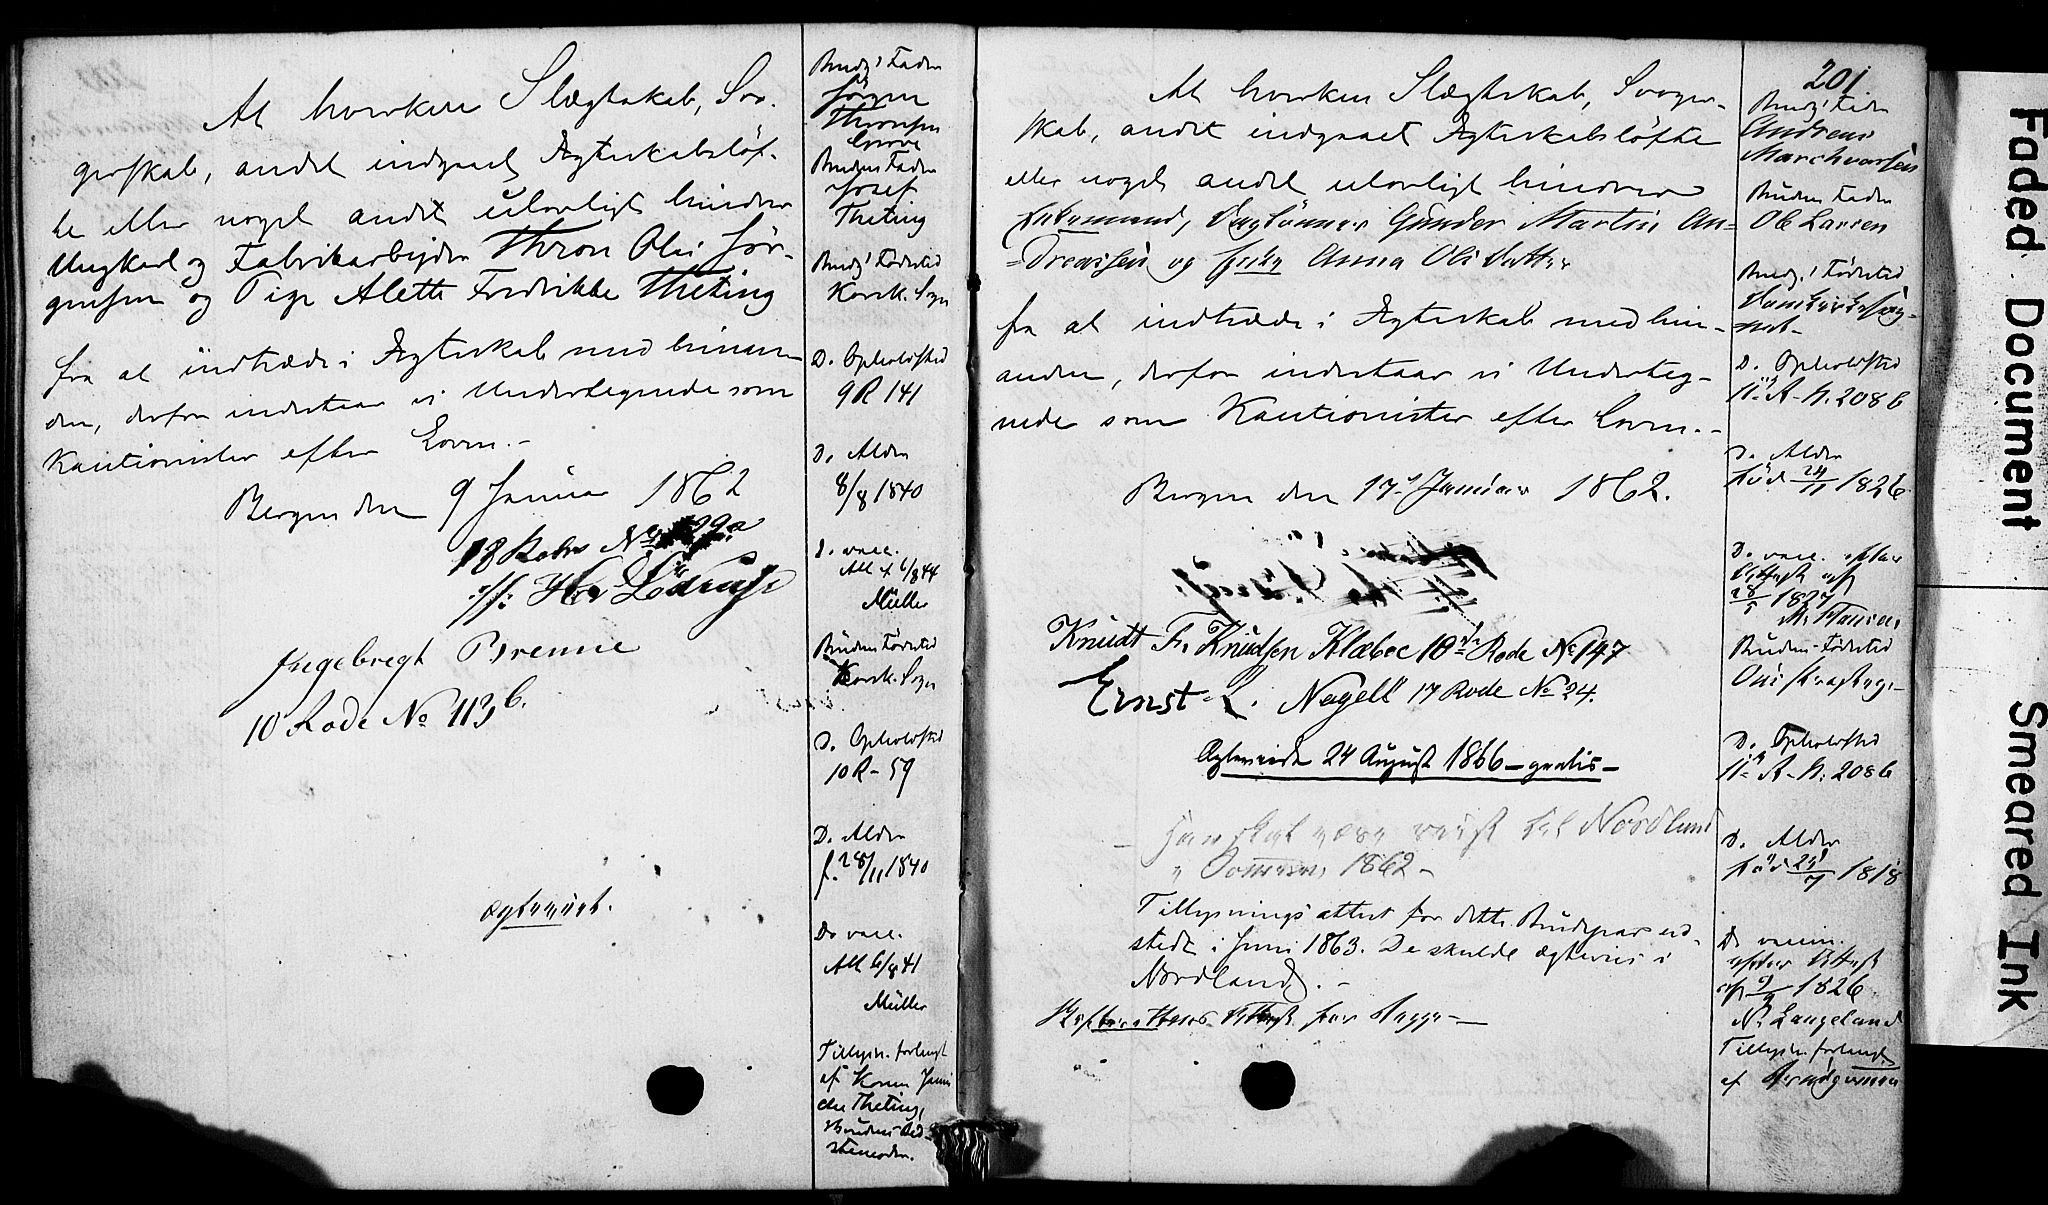 At hverken Slægtskab, Svo-
gerskab, andet indgaaet Ægteskabsløf-
te eller noget andet ulovligt hindrer
Ungkarl og Fabrikarbejder Thron Olai Jør-
gensen og Pige Alette Fredrikke Theting
fra at indtræde i Ægteskab med hinan-
den, derfor indestaar vi Undertegnede som
Kautionister efter Loven.-
Bergen den 9 Januar 1862
18 Rode No 29a
Ingebregt Brenne
10 Rode No 113b.
ægteviet.
Brudg! Fader
Jörgen
Thronsen
Brudens Fader
Josef
Theting
Brudg! Fødested
Korsk. Sogn
D. Opholdsted
9 R 141
D. Alder
8/8 1840
D. vacc.
Att. 6/8 44
Müller
Brudens Fødested
Korsk. Sogn
D. Opholdsted
10 R - 59
D. Alder
f. 28/11 1840
Do vacc.
Att 6/8 41
Müller
Tillysn. forlangt
af Konen
Theting,
Brudens Bed-
stemoder.
201
At hverken Slægtskab, Svoger-
skab, andet indgaaet Ægteskabsløfte
eller noget andet ulovligt hindrer
Enkemand, Daglønner Gunder Martin An-
=dreassen og Enke Anna Olsdatter
fra at indtræde i Ægteskab med hin-
anden, derfor indestaar vi Underteg-
nede som Kautionister efter Loven.-
Bergen den 17de Januar 1862.
Knudt Fr. Knudsen Klæboe 10de Rode No 147
Ernst L. Nagell 17 Rode No 24.
Ægteviede 24 August 1866 - gratis -
- han skal være reist til Nordland
i Sommer 1862 -
Tillysningsattest for dette Brudepar ud-
stedt i Juni 1863. De skulde ægtevies i
Nordland. -
Attest for begge -
Brudg! Fader
Andreas
Marchussen
Brudens Fader
Ole Larsen
Brudg! Fødested
Domkirkesog-
net -
D. Opholdsted
11te R - N. 208b
D. Alder
Född 24/11 1826
D. vacc. efter
Attest af
28/5 1827
M. Hansen
Brudens Fødested
D. Opholdsted
11te R - N. 208b
D. Alder
Född 29/7 1818
Do vaccin.
efter Attest
af 9/9 1826
N. Langeland
Tillysn. forlangt
af Brudgommen
Faded Document
Smeared Ink